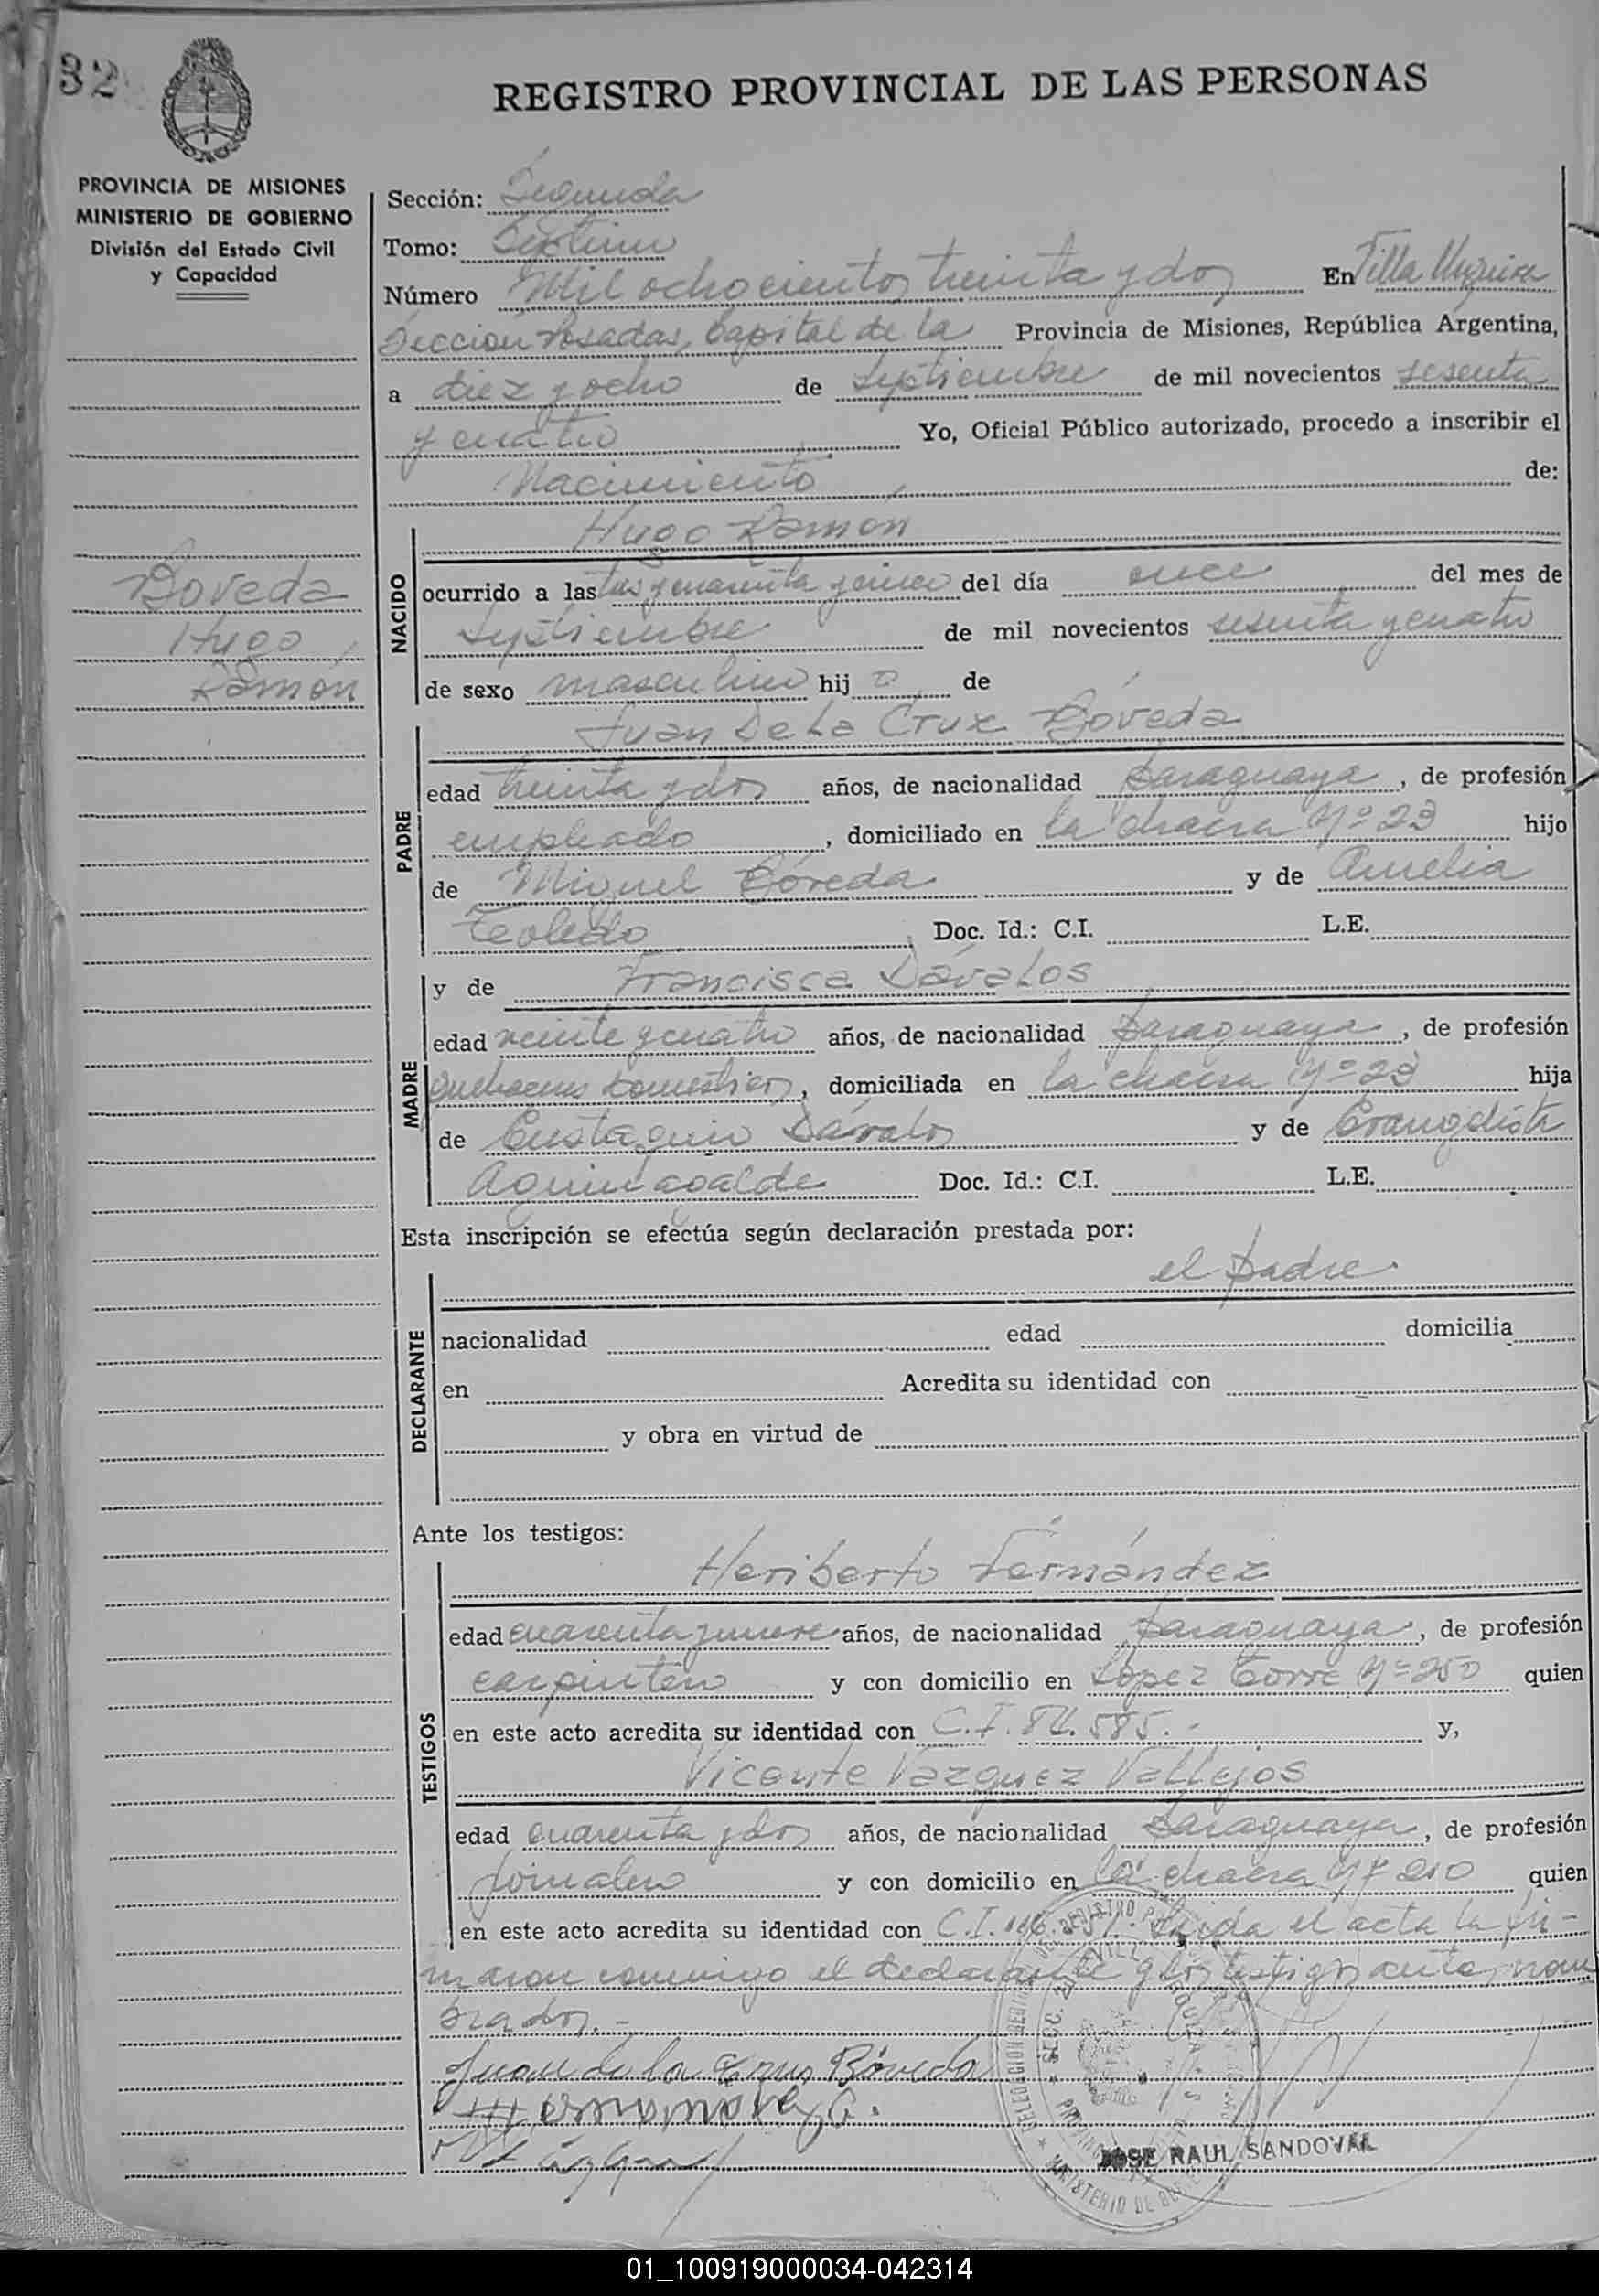 32
REGISTRO PROVINCIAL DE LAS PERSONAS
PROVINCIA DE MISIONES
MINISTERIO DE GOBIERNO
División del Estado Civil
y Capacidad
Boveda
Hugo
Ramón
Sección: Segunda
Tomo: Septimo
Número Mil ochocientos treinta y dos En Villa Urquiza
Sección Posadas, Capital de la Provincia de Misiones, República Argentina,
a diez y ocho de Septiembre de mil novecientos sesenta
y cuatro Yo, Oficial Público autorizado, procedo a inscribir el
Nacimiento de:
NACIDO
Hugo Ramón
ocurrido a las tres y cuarenta y cinco del día once del mes de
Septiembre de mil novecientos sesenta y cuatro
de sexo masculino hijo de
PADRE
Juan De La Cruz Bóveda
edad treinta y dos años, de nacionalidad paraguaya, de profesión
empleado, domiciliado en la chacra Nº 23 hijo
de Miguel Bóveda y de Amelia
Teoledo Doc. Id.: C.I. L.E.
MADRE
y de Francisca Dávalos
edad veinte y cuatro años, de nacionalidad paraguaya, de profesión
quehaceres domesticos, domiciliada en la chacra Nº 23 hija
de Eustaquio Dávalos y de Evangelista
Aguinagalde Doc. Id.: C.I. L.E.
Esta inscripción se efectúa según declaración prestada por:
el padre.
DECLARANTE
nacionalidad edad domicilia
en Acredita su identidad con
y obra en virtud de
Ante los testigos:
TESTIGOS
Heriberto Fernández
edad cuarenta y nueve años, de nacionalidad paraguaya, de profesión
carpintero y con domicilio en López Torre Nº 250 quien
en este acto acredita su identidad con C.I. 84.585.- y,
Vicente Vazquez Vallejos
edad cuarenta y dos años, de nacionalidad paraguaya, de profesión
jornalero y con domicilio en la chacra Nº 210 quien
en este acto acredita su identidad con C.I. Leida el acta la fir-
maron conmigo el declarante y los testigos antes nom
brados.-
Juan de la Cruz Bóveda
JOSE RAUL SANDOVAL
01_100919000034-042314